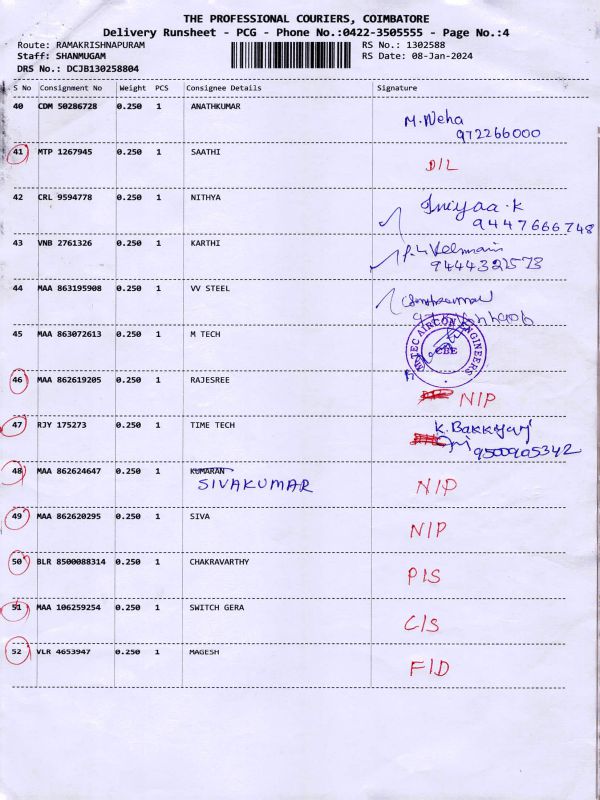 THE PROFESSIONAL COURIERS, COIMBATORE
Delivery Runsheet - PCG - Phone No.:0422-3505555 - Page No.:4
Route: RAMAKRISHNAPURAM RS No.: 1302588
Staff: SHANMUGAM RS Date: 08-Jan-2024
DRS No.: DCJB130258804
S No Consignment No Weight PCS Consignee Details Signature
40 CDM 50286728 0.250 1 ANATHKUMAR
M. Neha
972266000
41 MTP 1267945 0.250 1 SAATHI
D/L
42 CRL 9594778 0.250 1 NITHYA
Iniyaa.K
9447666748
43 VNB 2761326 0.250 1 KARTHI
9444321573
44 MAA 863195908 0.250 1 VV STEEL
45 MAA 863072613 0.250 1 M TECH
AIRCON ENGINEERS
CBE
46 MAA 862619205 0.250 1 RAJESREE
N/P
47 RJY 175273 0.250 1 TIME TECH
K. Bakkyaj
9500905342
48 MAA 862624647 0.250 1 KUMARAN
SIVAKUMAR
N/P
49 MAA 862620295 0.250 1 SIVA
N/P
50 BLR 8500088314 0.250 1 CHAKRAVARTHY
P/S
51 MAA 106259254 0.250 1 SWITCH GERA
C/S
52 VLR 4653947 0.250 1 MAGESH
F/D